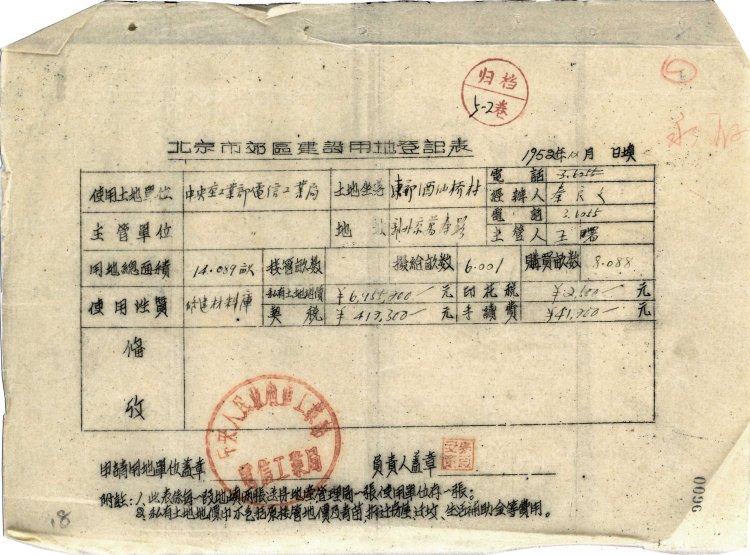 归档
5-2卷
北京市郊區建設用地登記表
1952年 月 日填
使用土地單位 中央重工業部電信工業局 土地坐落 東郊酒仙桥村 電話 3.6255
經辦人
主管單位 地 電話 3.6255
主管人 王曙
用地總面積 14.089亩 接管畝數 撥給畝數 6.001 購買畝數 8.088
使用性質 修建材料庫 私有土地地價 元 印花稅 元
契稅 ¥417,300 元 手續費 元
備
攷
電信工業局
申請用地單位蓋章 負責人蓋章
附註：1.此表係每一段地填兩張送持地產管理局一張使用單位存一張。
2.私有土地地價中不包括原接管地價及青苗,拆迁房屋,迁坟,生活補助金等費用。
0096
18